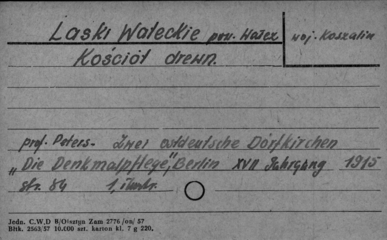 Laski Wałeckie pow. Wałcz woj. Koszalin
Kościół drewn.
prof. Peters - Zwei ostdeutsche Dorfkirchen
„Die Denkmalpflege", Berlin XVII Jahrgang 1915
str. 84 1 ilustr.
Jedn. C.W.D B/Olsztyn Zam 2776/oa/57
Błtk. 2563/57 10.000 szt. karton kl. 7 g 220,